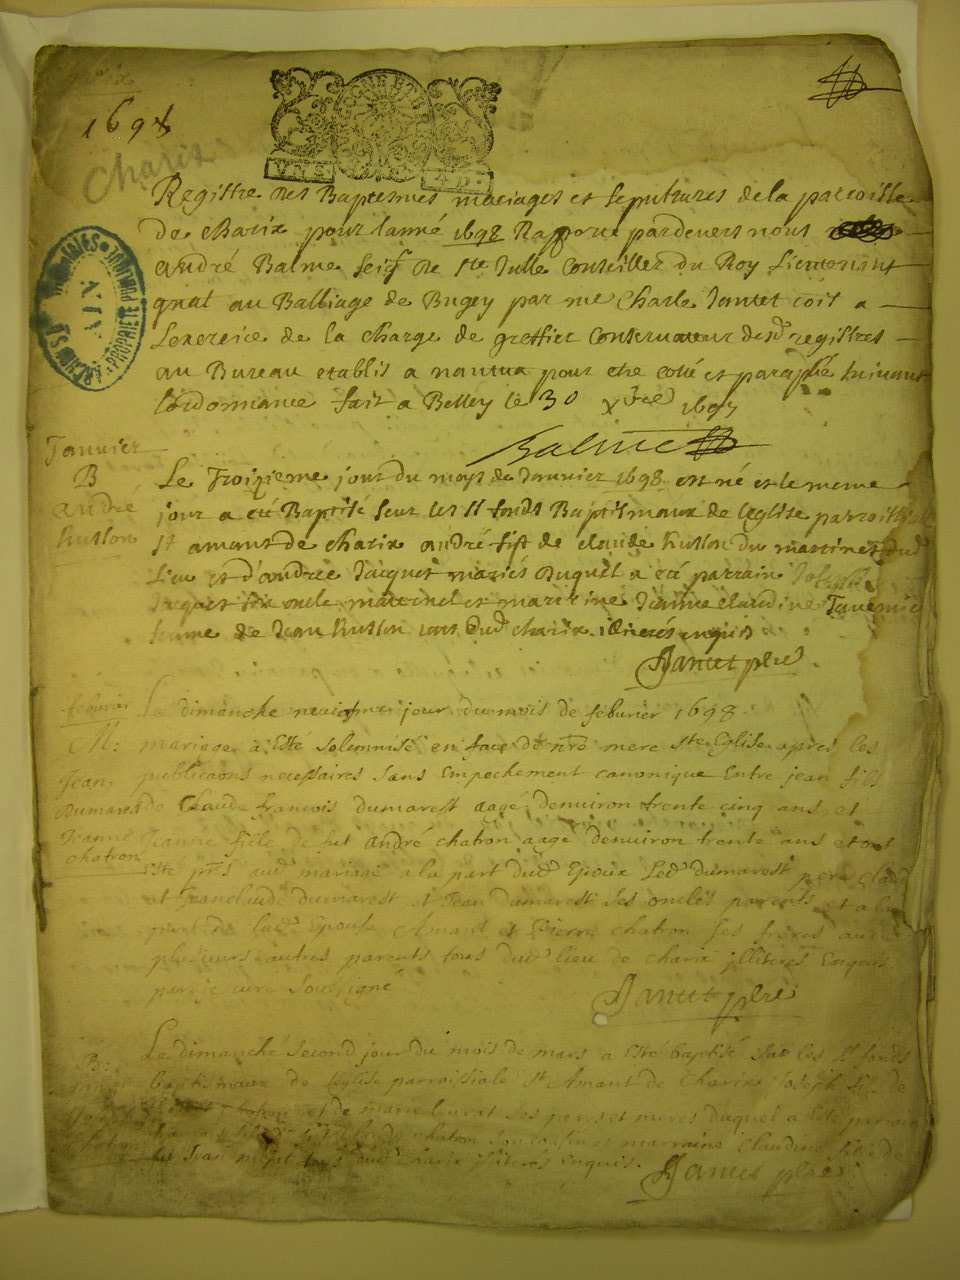 1698
Charix
GNERALITE
VNS
4 D.
Registre des Baptesmes mariages et sepultures de la parroisse
de charix pour lanné 1698 Rapporté pardevers nous
andré Balme seig.r de S.te Julle Conseiller du Roy Lieutenant
gnal au Balliage de Bugey par me Charle Jantet coit a
Lexercice de la charge de greffier Conservateur desd. registres
au Bureau etablis a nantua pour etre cotté et paraphé suivant
lordonnance fait a Belley le 30 xbre 1697
Balme
ARCHIVES
AIN
PROPRIETE PUBLIQUE
Janvier
B
andré
hutlon
Le Troizieme jour du moys de Janvier 1698 est né et le meme
jour a eté Baptisé sur les S.t fonds Baptismaux de leglise parroissialle
S.t amant de charix andré fils de claude hutlon du martinet dud.
Lieu et d'andree Jacquet mariés Duquel a eté parrain Joseph
Jacquet son oncle maternel et marrine Jeanne claudine Tavernier
femme de Jean hutlon tous dud. charix illiterés enquis
Jantet pbre
feburier
M:
Jean
Dumarest
Jeanne
chatron
Le dimanche neuviesme jour du mois de feburier 1698
mariage à Esté solemnisé en face de nre mere s.te Eglise apres les
publicaons necessaires sans Empechement canonique Entre jean fils
de Claude françois dumarest aagé denuiron trente cinq ans et
Jeanne fille de fut André chatron aagé denuiron trente ans et ont
Esté pnts aud. mariage a la part dud. Epoux Led. dumarest pere claude
et Jeanclaude dumarest et Jean dumarest ses oncles parents et a la
part de lad. Epouse Amand et Pierre chatron ses freres avec
plusieurs autres parents tous dud. lieu de charix illiterés Enquis
par je curé soussigné
Jantet pbre
B:
Joseph
chatron
Le dimanche second jour du mois de mars a Esté baptisé sur les S.t fonds
baptismaux de Leglise parroissiale S.t Amant de Charix Joseph fils de
chatron et de marie leurat ses peres et meres duquel a esté parrain
chatron son cousin et marraine Claudine fille de
fut Jean tous dud. charix illiterés Enquis.
Jantet pbre